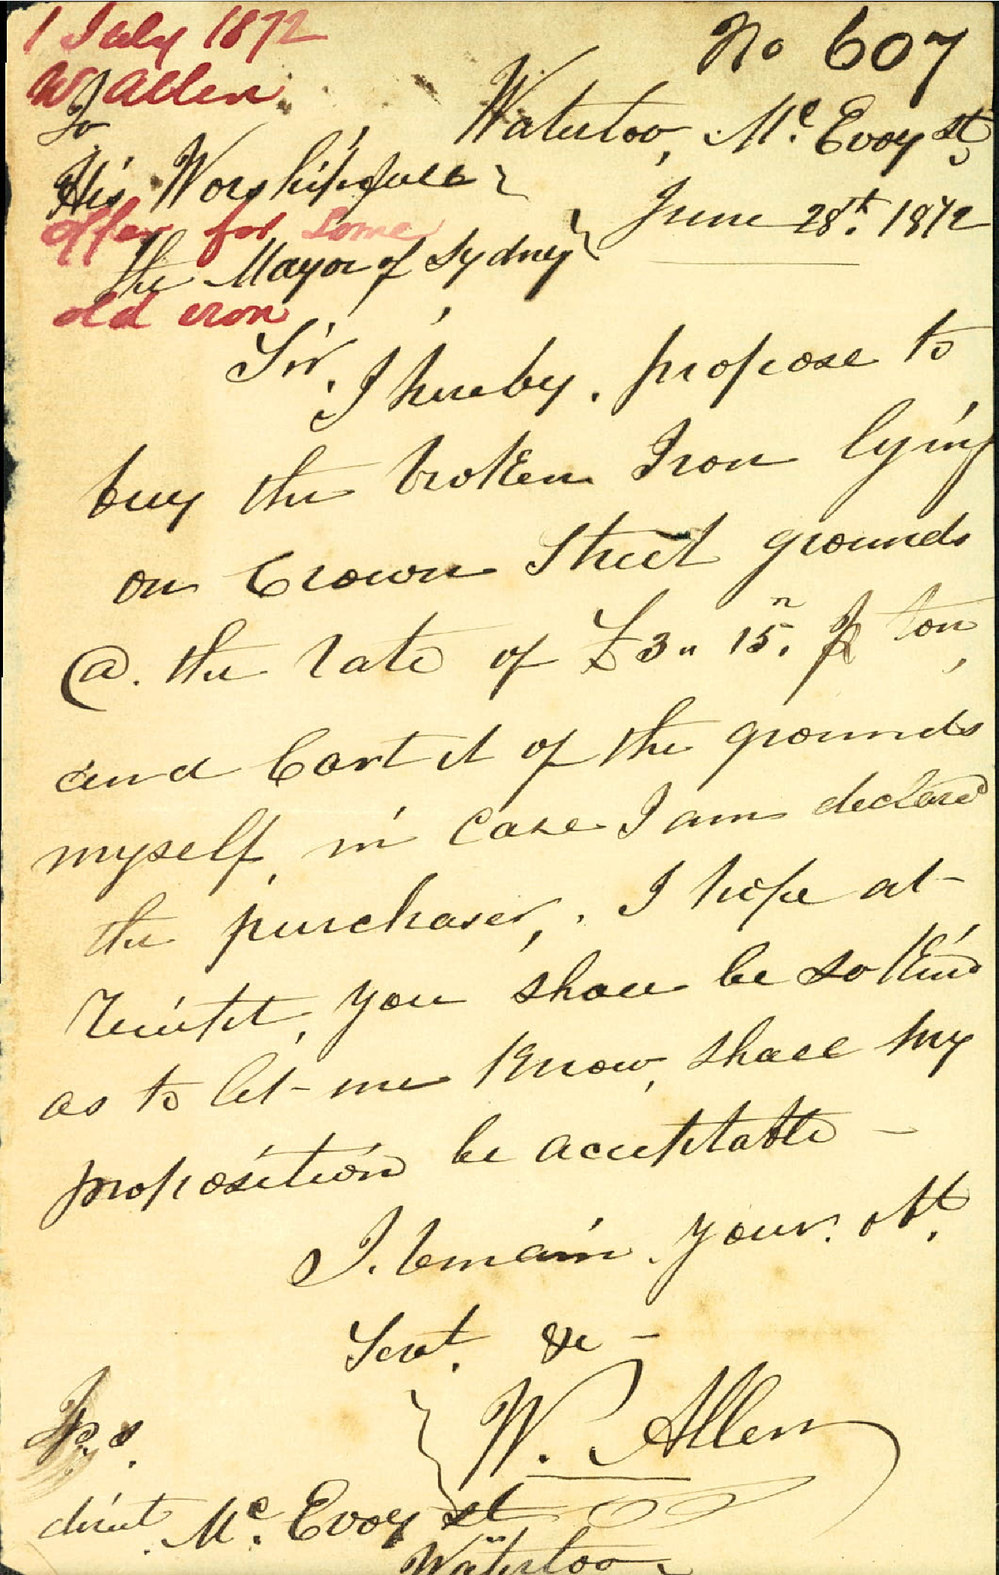 1 July 1872
No 607
W Allen
To
Waterloo, Mc. Evoy st,
His Worshipfull
June 28th. 1872
offer for some
the Mayor of Sydney
old iron
Sir,
I hereby. propose to
buy the broken Iron lying
on Crown Street grounds
@. the rate of £3 " 15". ⅌ ton,
and Cart it of the grounds
myself, in case I am declared
the purchaser,. I hope at-
Reciept, you shall be so Kind
as to let me Know, shall my
proposition be acceptable -
I. remain. your. obt.
Servt. &c -
W. Allen
P. s.
direct Mc. Evoy st
Waterloo